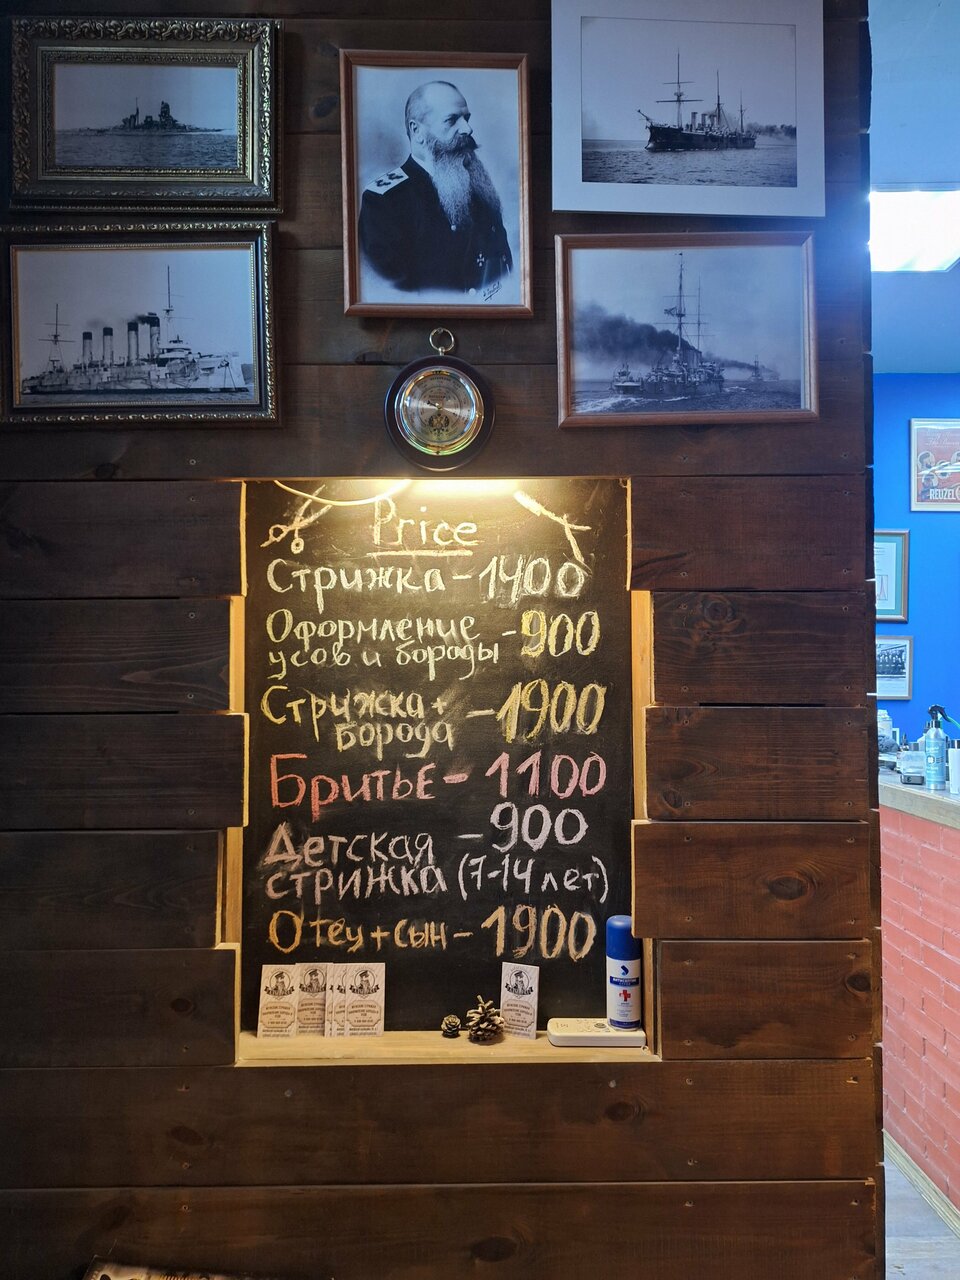 Price
Стрижка - 1400
Оформление
усов и бороды - 900
Стрижка +
борода - 1900
Бритьё - 1100
Детская - 900
стрижка (7-14 лет)
Отец + сын - 1900
REUZEL